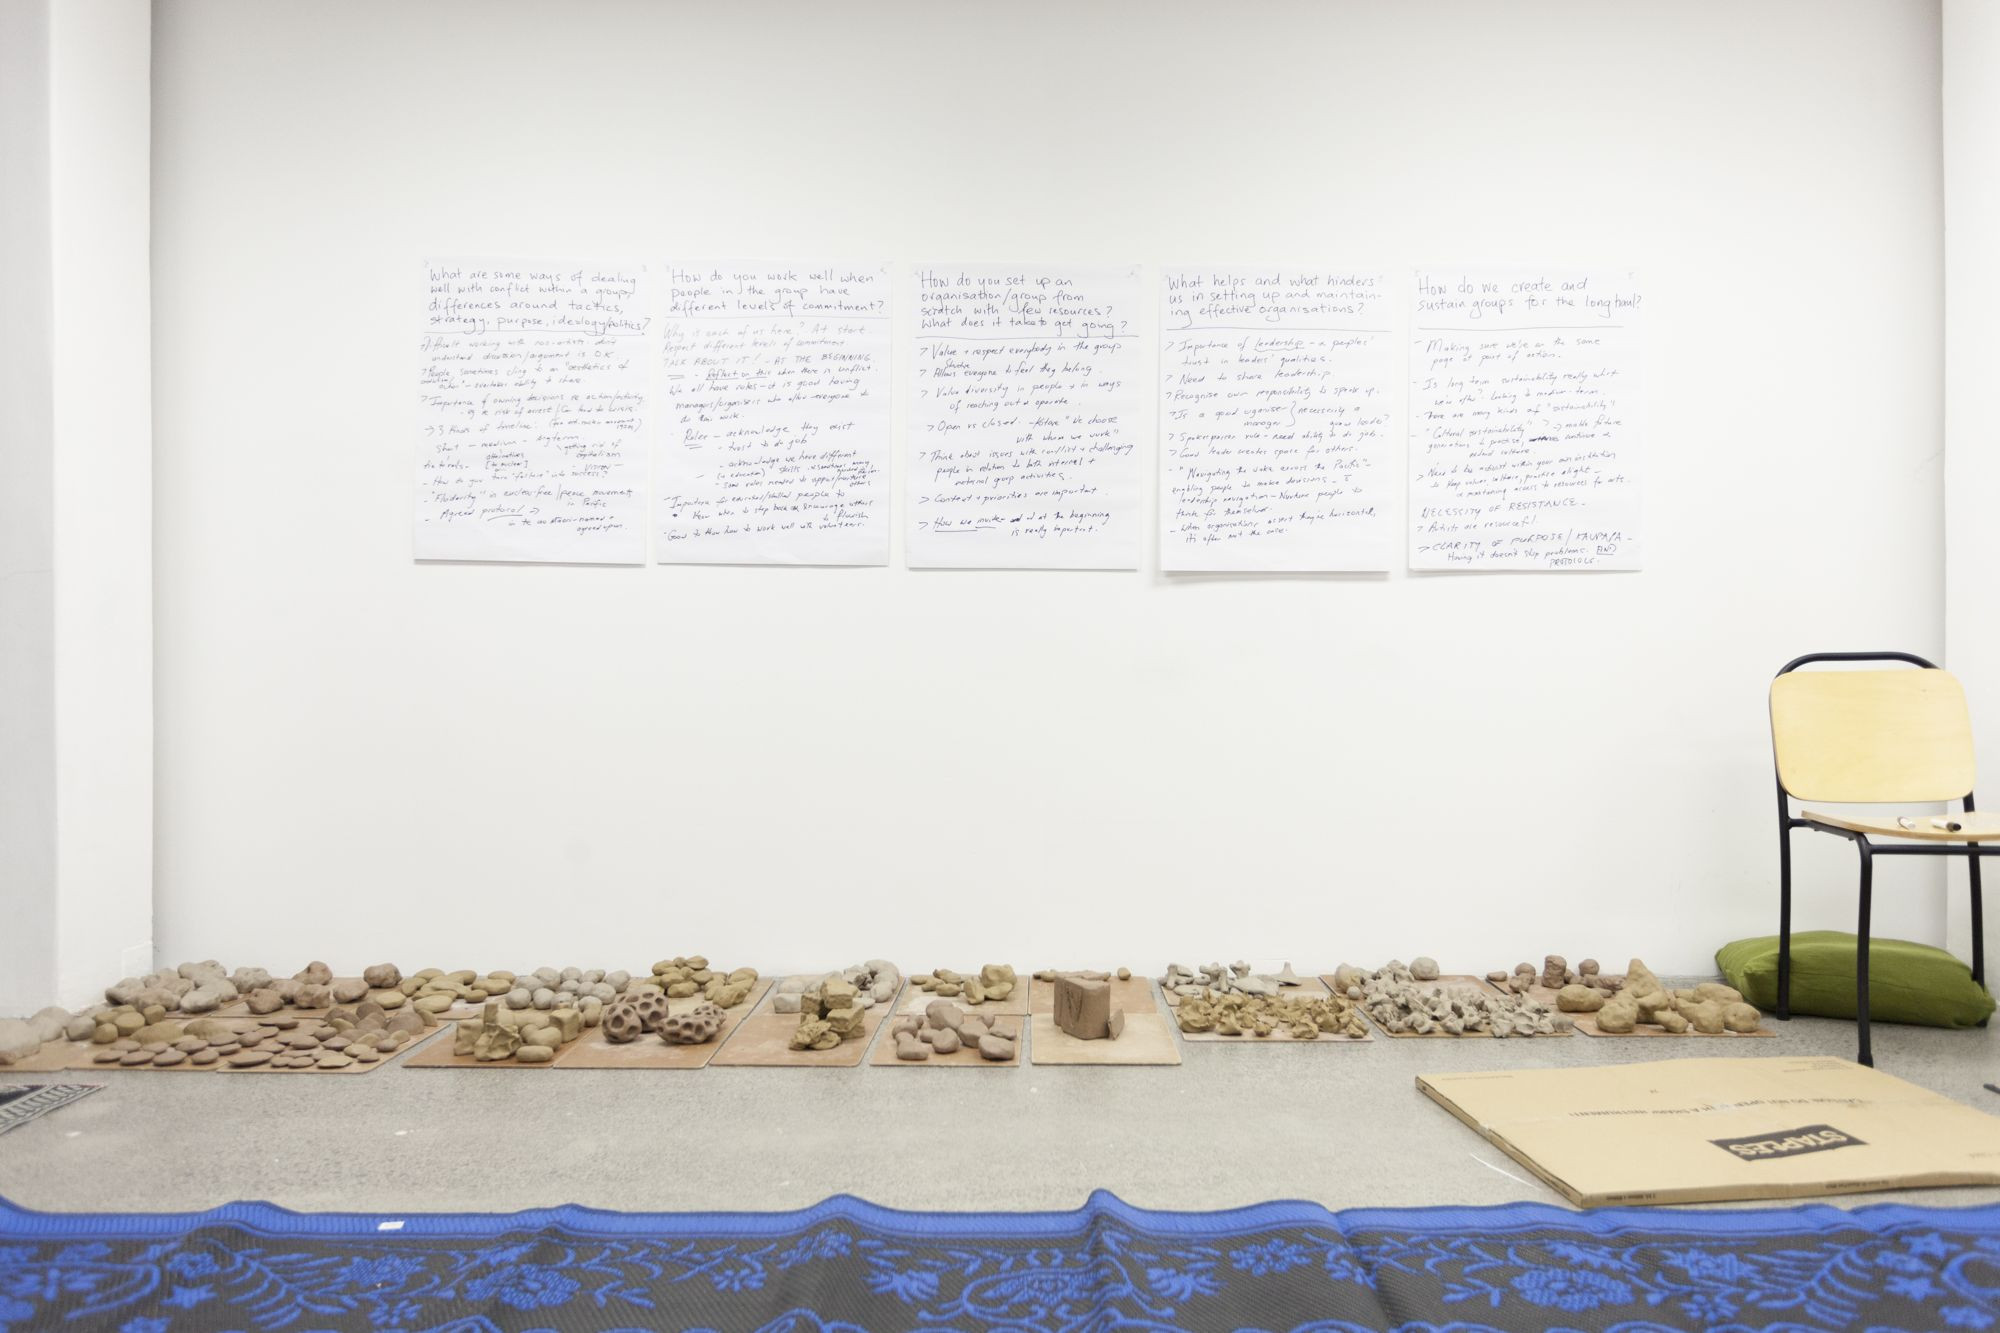 What are some ways of dealing
well with conflict within a group,
differences around tactics,
strategy, purpose, ideology/politics?
Difficult working with non-artists- don't
understand discussion/argument is O.K.
> People sometimes cling to an "aesthetics of
ability to share.
> Importance of owning decisions re action/activity
risk of arrest/
-> 3 kinds of timeline:
Short - medium - longterm
alternatives
getting rid of
capitalism
- How do you turn "failure" into success?
- "Fluidarity" in nuclear free/peace movement
in Pacific
- Agreed protocol ->
agreed upon.
How do you work well when
people in the group have
different levels of commitment?
Why is each of us here? At start.
Respect different levels of commitment.
TALK ABOUT IT! - AT THE BEGINNING.
- Reflect on this when there is conflict.
We all have roles - it is good having
managers/organisers who allow everyone to
do their work.
- Roles - acknowledge they exist
- trust to do job
- acknowledge we have different
skills
- some roles needed to support/nurture
others
- Importance for educated/skilled people to
know when to step back & encourage others
to flourish
- Good to know how to work well with volunteers.
How do you set up an
organisation/group from
scratch with few resources?
What does it take to get going?
> Value + respect everybody in the group
Structure
> Allows everyone to feel they belong.
> Value diversity in people + in ways
of reaching out & operate.
> Open vs closed. "We choose
with whom we work"
> Think about issues with conflict + challenging
people in relation to both internal +
external group activities.
> Context + priorities are important.
> How we invite at the beginning
is really important.
What helps and what hinders
us in setting up and maintain-
ing effective organisations?
> Importance of leadership - a peoples'
trust in leaders' qualities.
> Need to share leadership
> Recognise own responsibility to speak up.
> Is a good organiser } necessarily a
manager good leader?
> Spokesperson role - need ability to do job.
> Good leader creates space for others.
- "Navigating the waka across the Pacific" -
enabling people to make decisions -
leadership navigation - Nurture people to
think for themselves.
- When organisations assert they're horizontal,
it's often not the case.
How do we create and
sustain groups for the long haul?
- Making sure we're on the same
page at part of action.
- Is long term sustainability really what
we're after? Looking to medium-term.
- There are many kinds of "sustainability"
- "Cultural sustainability" -> enable future
generations to practise, continue &
extend culture.
> Need to be robust within your own institution
to keep values, culture, practice alight -
& maintaining access to resources for arts.
NECESSITY OF RESISTANCE -
> Artists are resourceful.
> CLARITY OF PURPOSE / KAUPAPA -
Having it doesn't stop problems. AND
PROTOCOLS.
STAPLES